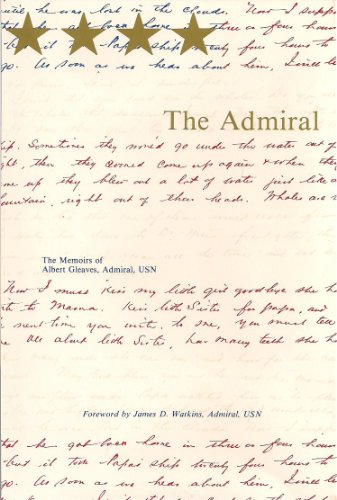 until he was lost in the clouds. Now I suppose
that he got back home in three or four hours
but it took Papa's ship twenty four hours to
go. As soon as we hear about him, I will be
The Admiral
up. Sometimes they would go under the water out of
sight, then they would come up again & when they
came up they blew out a lot of water just like a
fountain, right out of their heads. Whales are
The Memoirs of
Albert Gleaves, Admiral, USN
Now I must kiss my little girl good bye she ha
to Mama. Kiss little Sister for papa, and
next time you write to me, you must tell
me all about little Sister, how many teeth she ha
Foreword by James D. Watkins, Admiral, USN
that he got back home in three or four hours
but it took Papa's ship twenty four hours to
go. As soon as we hear about him, I will be